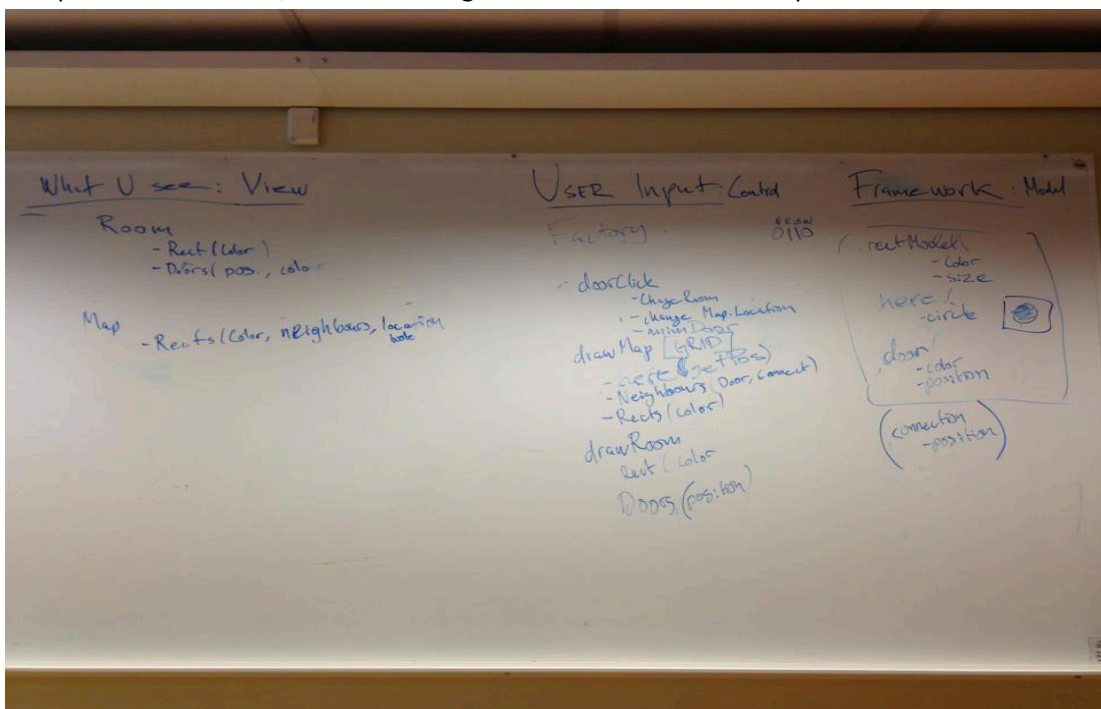 What U see: View
Room
- Rect(Color)
- Doors( pos., colo
Map
- Rects(Color, neighbours, location
User Input: Control
Factory.
0110
doorClick
- Change Room
- change Map.Location
- Door
drawMap [GRID]
- here (getPos)
- Neighbours (Door, connect)
- Rects (color)
drawRoom
Rect (color
Doors (position)
Framework: Model
rectModel
- Color
- size
here!
- circle
door!
- color
- position
(connection
- position)